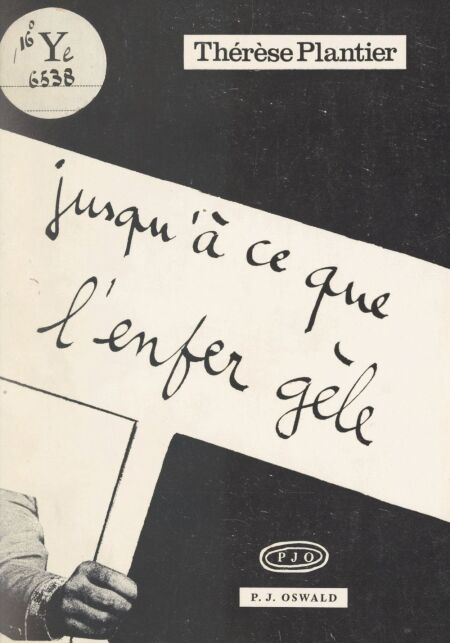 16° Ye
6538
Thérèse Plantier
jusqu'à ce que
l'enfer gèle
PJO
P. J. OSWALD